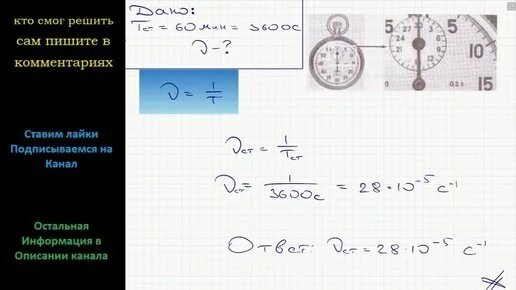 кто смог решить
сам пишите в
комментариях
Ставим лайки
Подписываемся на
Канал
Остальная
Информация в
Описании канала
Дано:
Tст = 60 мин = 3600с
ν - ?
ν = 1/T
νст = 1/Tст
νст = 1/3600с = 28·10⁻⁵ с⁻¹
Ответ: νст = 28·10⁻⁵ с⁻¹
5
27
30
3
24
6
5
10
15
0,2 s
10
15